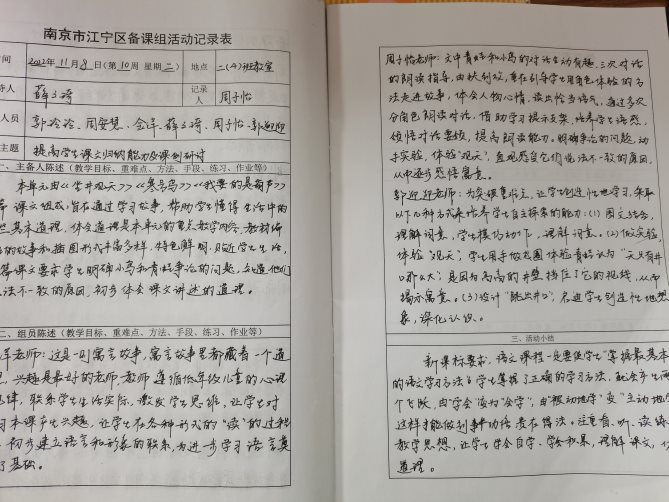 南京市江宁区备课组活动记录表
时间 2022年11月8日(第10周 星期二) 地点 二(4)班教室
持人 薛文琦 记录人 周子怡
人员 郭玲玲、周安慧、金洋、薛文琦、周子怡、郭迎迎
主题 提高学生课文归纳能力及课例研讨
一、主备人陈述(教学目标、重难点、方法、手段、练习、作业等)
本单元由《坐井观天》《寒号鸟》《我要的是葫芦》
课文组成,旨在通过学习故事,帮助学生懂得生活中的
些基本道理。体会道理是本单元的重点教学内容,教材编
的故事和插图形式丰富多样,特色鲜明,贴近学生生活,
篇课文要求学生明确小鸟和青蛙争论的问题,知道他们
法不一致的原因,初步体会课文讲述的道理。
二、组员陈述(教学目标、重难点、方法、手段、练习、作业等)
洋老师:这是一则寓言故事,寓言故事里都藏着一个道
,兴趣是最好的老师,教师遵循低年级儿童的心理
规律,联系学生生活实际,激发学生思维,让学生对
习本课产生兴趣,让学生在各种形式的“读”的过程
,初步建立语言和形象的联系,为进一步学习语言奠
了基础。
周子怡老师:文中青蛙和小鸟的对话生动有趣,三次对话
的朗读指导,由扶到放,重在引导学生用角色体验的方
法走进故事,体会人物心情,读出恰当语气。通过多次
分角色朗读对话,借助学习提示支架,培养学生语感,
领悟对话要领,提高朗读能力。明确争论的问题,动
手实验,体验“观天”,直观感知它们说法不一致的原因,
从中逐步感悟寓意。
郭迎迎老师:为突破重难点,让学生创造性地学习,采取
以下几种方式来培养学生自主探索的能力:(1)图文结合,
理解词意,学生模仿动作,理解词意。(2)做实验,
体验“观天”,学生用手做成圈体验青蛙认为“天只有井
口那么大”,是因为高高的井壁挡住了它的视线,从而
揭示寓意。(3)设计“跳出井口”,启迪学生创造性地想
象,深化认识。
三、活动小结
新课标要求,语文课程一定要使学生“掌握最基本
的语文学习方法”。学生掌握了正确的学习方法,就会产生两
个飞跃,由“学会”变为“会学”,由“被动地学”变“主动地
这样才能做到事半功倍,贵在得法。注重看、听、读、练
教学思想,让学生学会自学、学会积累,理解课文,
道理。